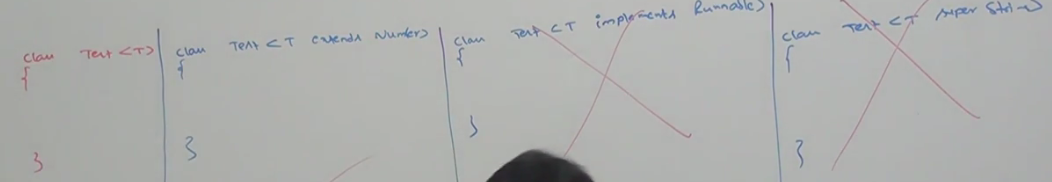 class Test <T>
{
}
class Test <T extends Number>
{
}
class Test <T implements Runnable>
{
}
class Test <T super String>
{
}